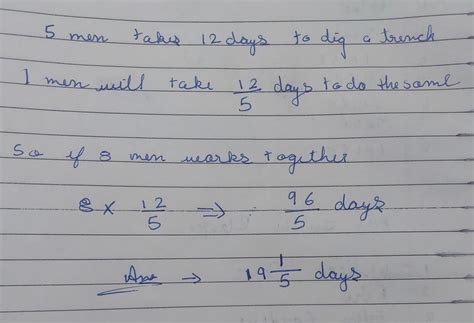 5 men takes 12 days to dig a trench
1 men will take 12/5 days to do the same
So if 8 men works together
8 × 12/5 ⇒ 96/5 days
Ans → 19 1/5 days